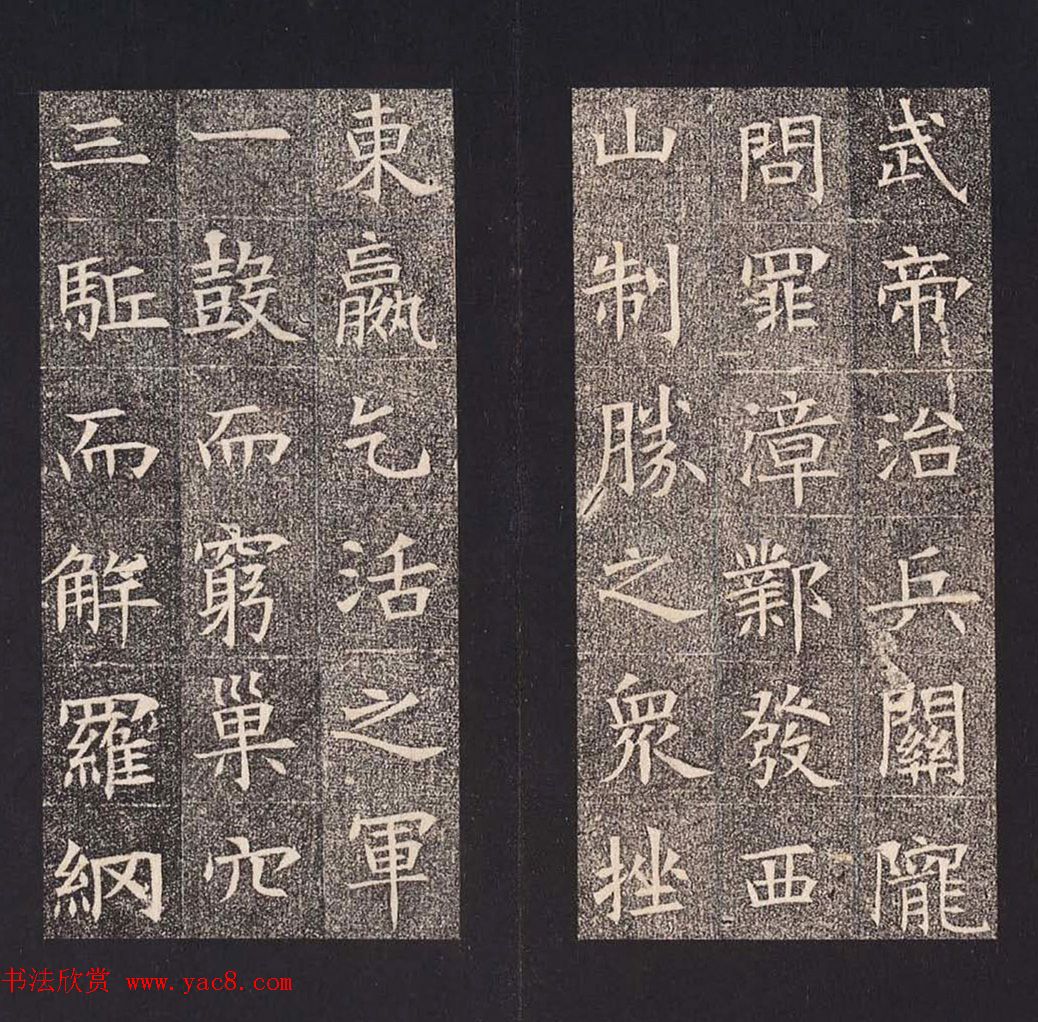 武帝治兵關隴
問罪漳鄴發西
山制勝之衆挫
東嬴乞活之軍
一鼓而窮巢穴
三駈而解羅網
书法欣赏 www.yac8.com